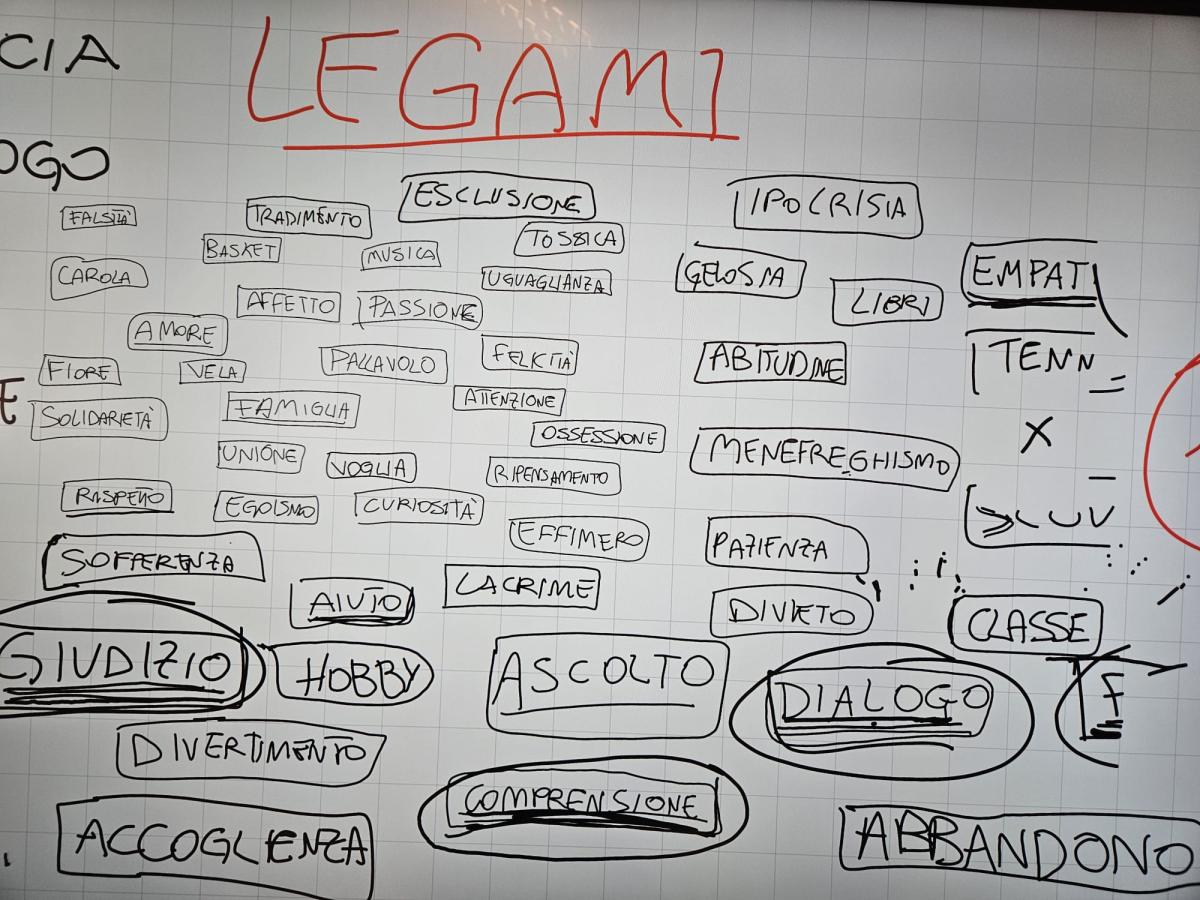 CIA
LEGAMI
OGO
ESCLUSIONE
IPOCRISIA
FALSITÀ
TRADIMENTO
TOSSICA
BASKET
MUSICA
GELOSIA
EMPATI
CAROLA
UGUAGLIANZA
LIBRI
AFFETTO
PASSIONE
AMORE
TENN
FELICITÀ
PALLAVOLO
ABITUDINE
FIORE
VELA
E
SOLIDARIETÀ
FAMIGLIA
ATTENZIONE
OSSESSIONE
X
UNIONE
VOGLIA
MENEFREGHISMO
RIPENSAMENTO
RISPETTO
EGOISMO
CURIOSITÀ
EFFIMERO
PAZIENZA
SOFFERENZA
AIUTO
LACRIME
DIVIETO
CLASSE
GIUDIZIO
HOBBY
ASCOLTO
DIALOGO
F
DIVERTIMENTO
COMPRENSIONE
ACCOGLIENZA
ABBANDONO